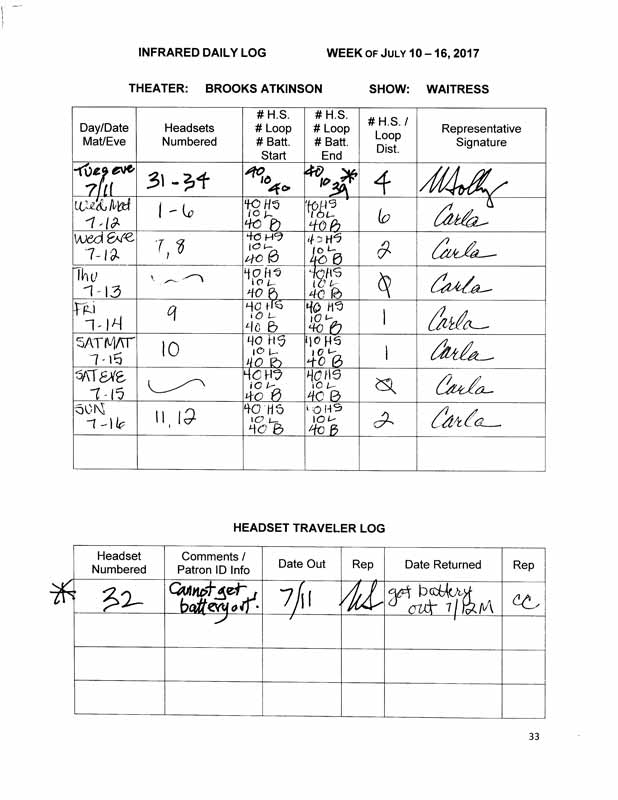 INFRARED DAILY LOG WEEK OF JULY 10 – 16, 2017
THEATER: BROOKS ATKINSON SHOW: WAITRESS
Day/Date Mat/Eve Headsets Numbered # H.S. # Loop # Batt. Start # H.S. # Loop # Batt. End # H.S. / Loop Dist. Representative Signature
Tues eve 7/11 31-34 40 10 40 40 10 39 * 4
Wed Mat 7-12 1-6 40 HS 10 L 40 B 40 HS 10 L 40 B 6 Carla
Wed Eve 7-12 7, 8 40 HS 10 L 40 B 40 HS 10 L 40 B 2 Carla
Thu 7-13 40 HS 10 L 40 B 40 HS 10 L 40 B 0 Carla
FRI 7-14 9 40 HS 10 L 40 B 40 HS 10 L 40 B 1 Carla
SAT MAT 7-15 10 40 HS 10 L 40 B 40 HS 10 L 40 B 1 Carla
SAT EVE 7-15 40 HS 10 L 40 B 40 HS 10 L 40 B 0 Carla
SUN 7-16 11, 12 40 HS 10 L 40 B 40 HS 10 L 40 B 2 Carla
HEADSET TRAVELER LOG
Headset Numbered Comments / Patron ID Info Date Out Rep Date Returned Rep
* 32 Cannot get battery out. 7/11 got battery out 7/12 M CC
33